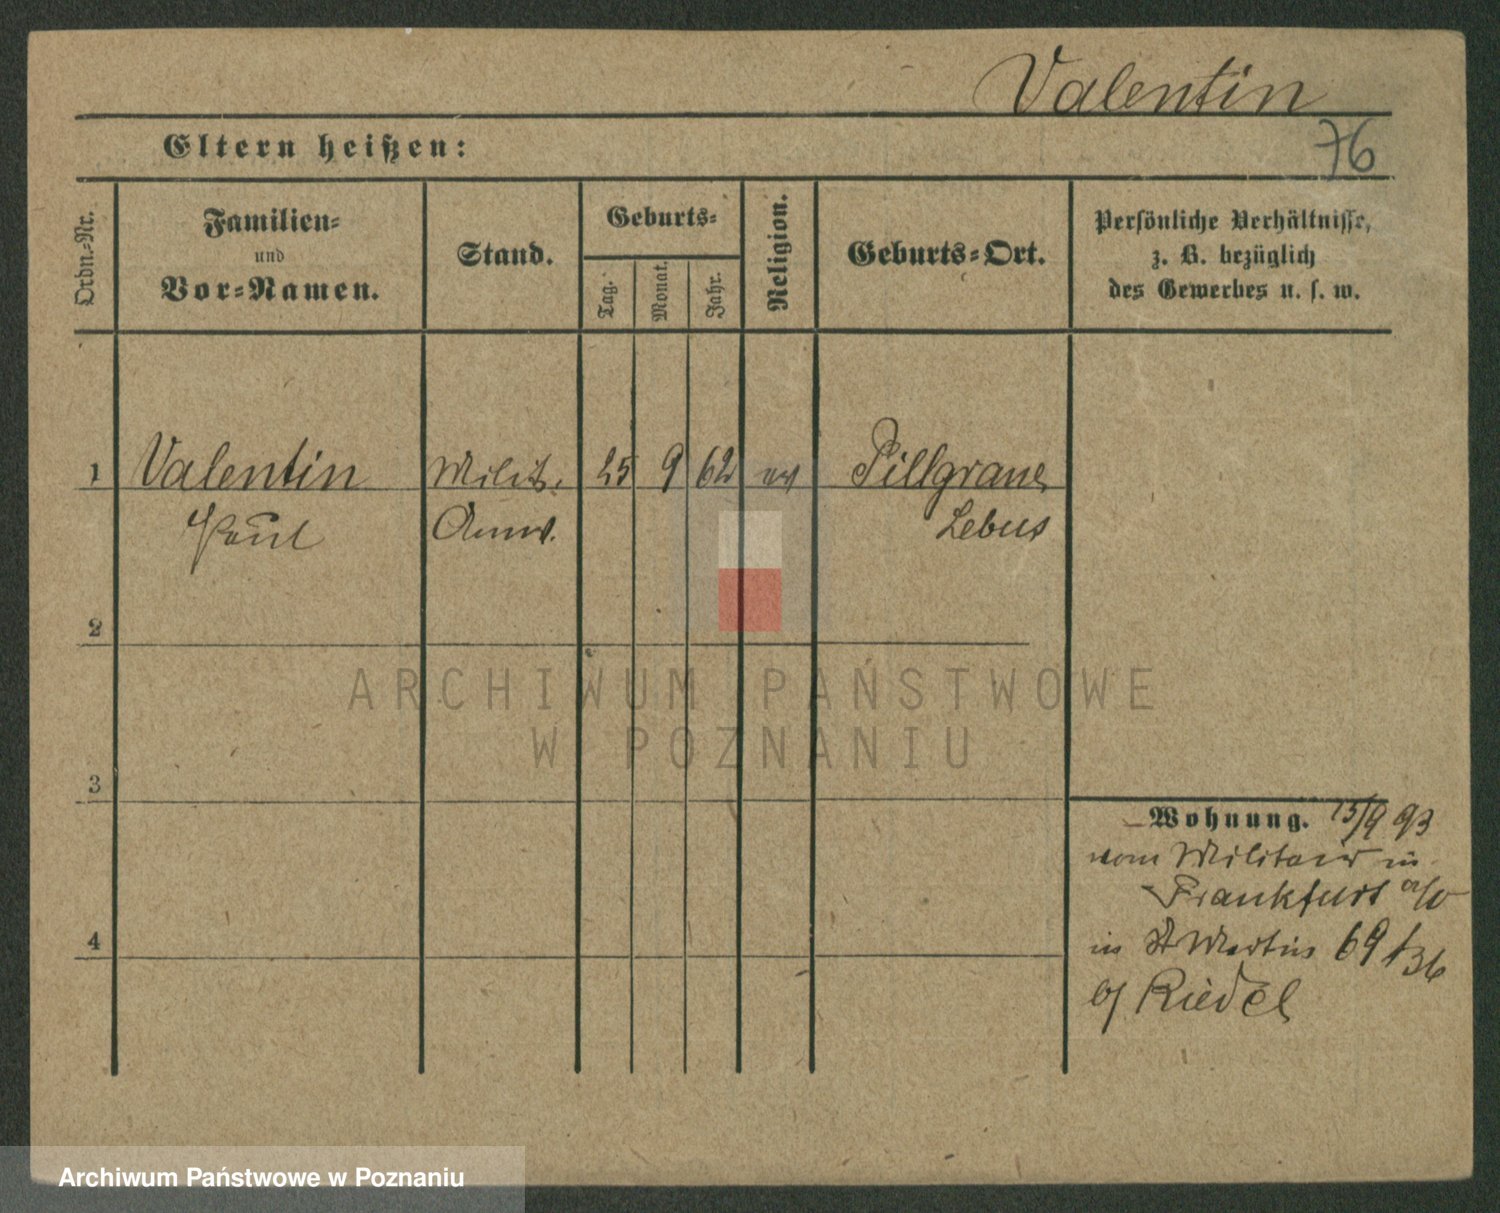 Valentin
76
Eltern heißen:
Ordn.-Nr.
Familien-
und
Vor-Namen.
Stand.
Geburts-
Tag.
Monat.
Jahr.
Religion.
Geburts-Ort.
Persönliche Verhältnisse,
z. B. bezüglich
des Gewerbes u. s. w.
1 Valentin Milit. 25 9 62 ev Pillgram
Paul Anw. Lebus
2
3
4
Wohnung. 15/9 93
vom Militair in
Frankfurt a/O
in St Martin 69
b/ Riedel
ARCHIWUM PAŃSTWOWE
W POZNANIU
Archiwum Państwowe w Poznaniu